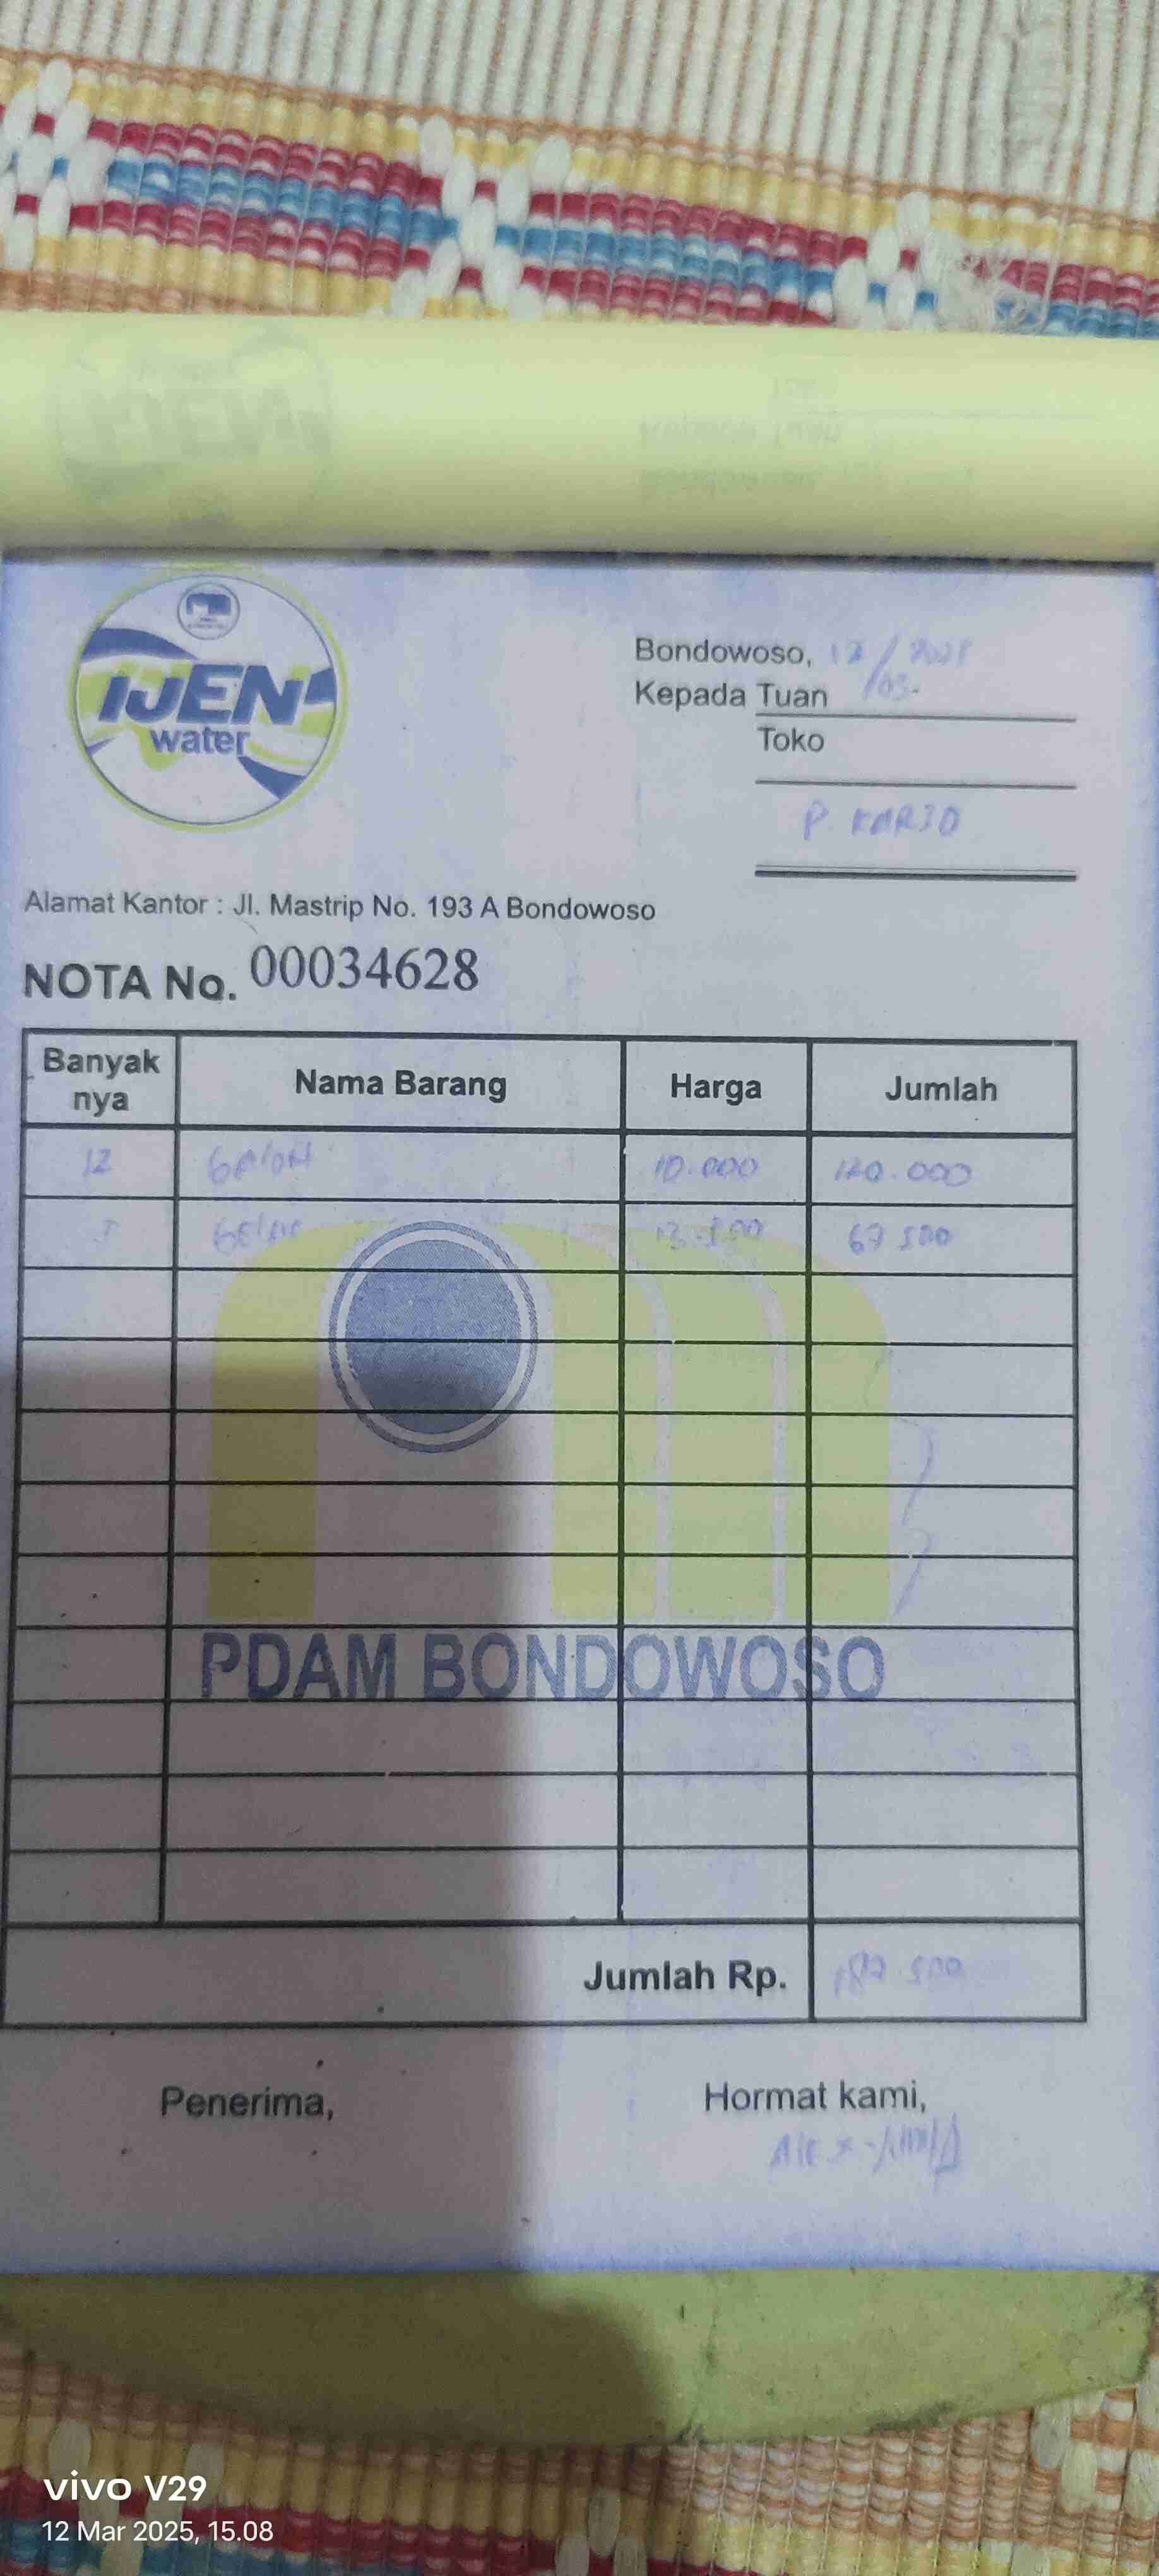 IJEN
water
Bondowoso, 12/03-2025
Kepada Tuan
Toko
P. KARJO
Alamat Kantor : Jl. Mastrip No. 193 A Bondowoso
NOTA No. 00034628
Banyak nya Nama Barang Harga Jumlah
12 GAlON 10.000 120.000
5 GElAS 13.500 67.500
PDAM BONDOWOSO
Jumlah Rp. 187.500
Penerima, Hormat kami,
AlEX
vivo V29
12 Mar 2025, 15.08